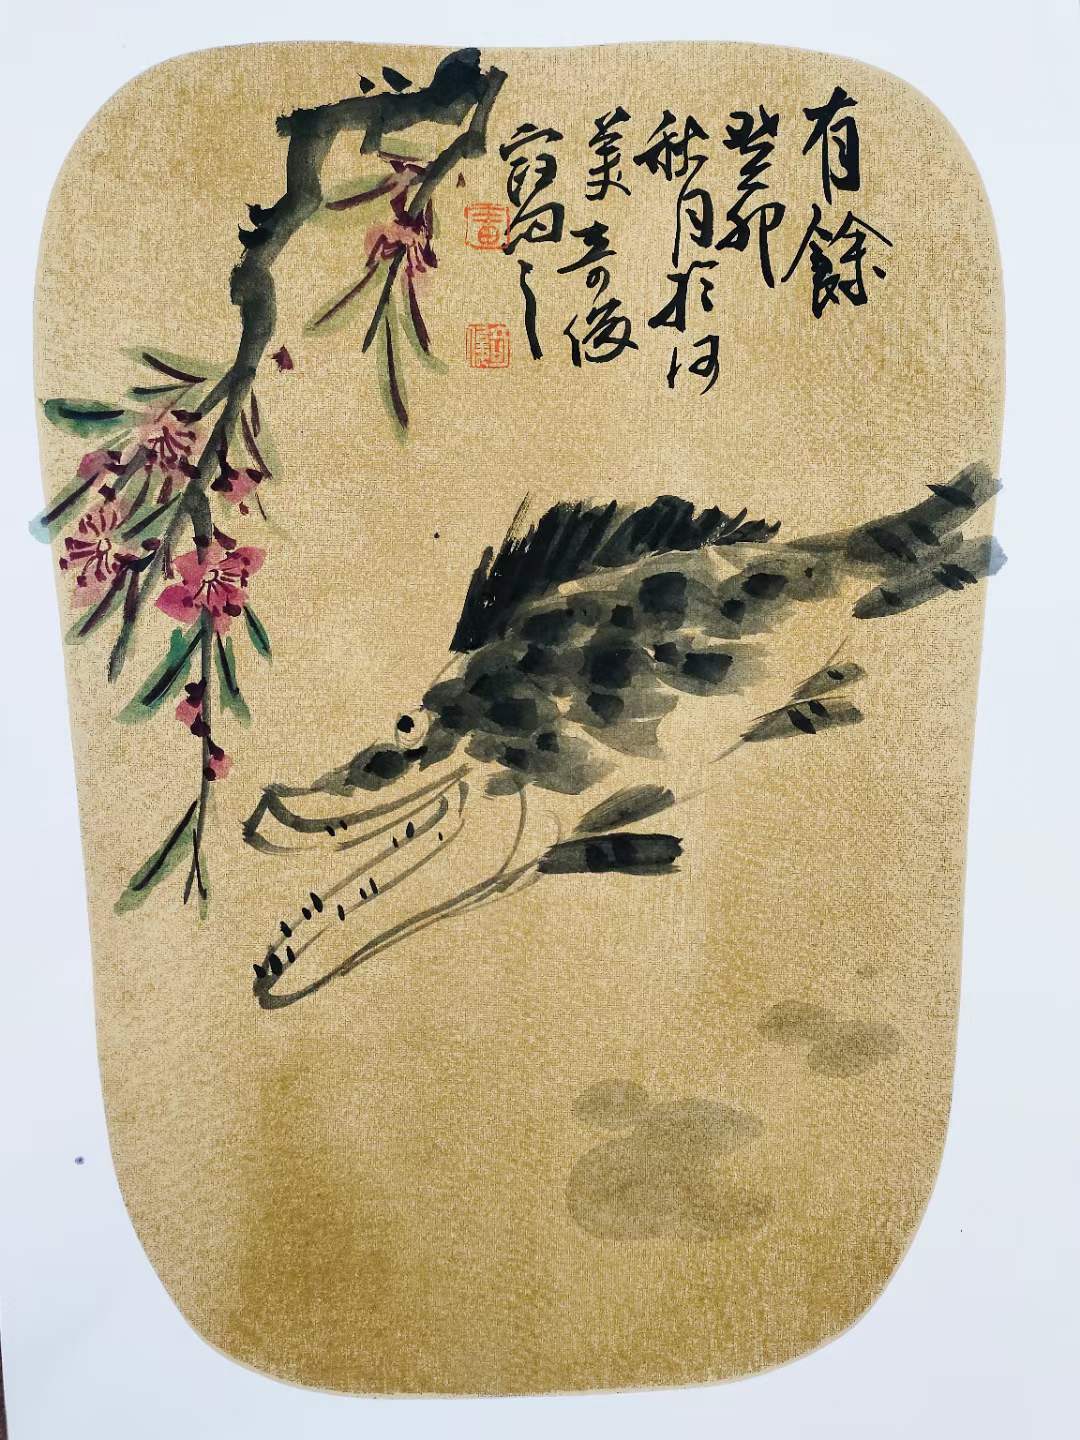 有餘
癸卯
秋月於河
美奇俊
寫之